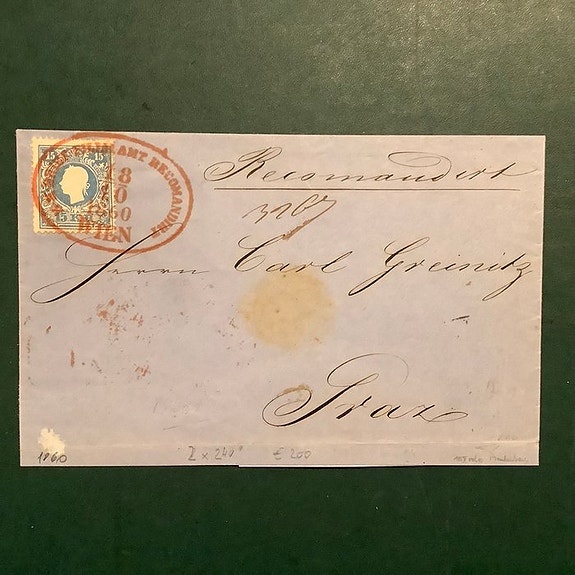 15 15
15 KR
AMT RECOMANDIRT
18
10
860
WIEN
Recomandirt
3267
Herrn Carl Greinitz
Graz
1860 2 x 240° € 200